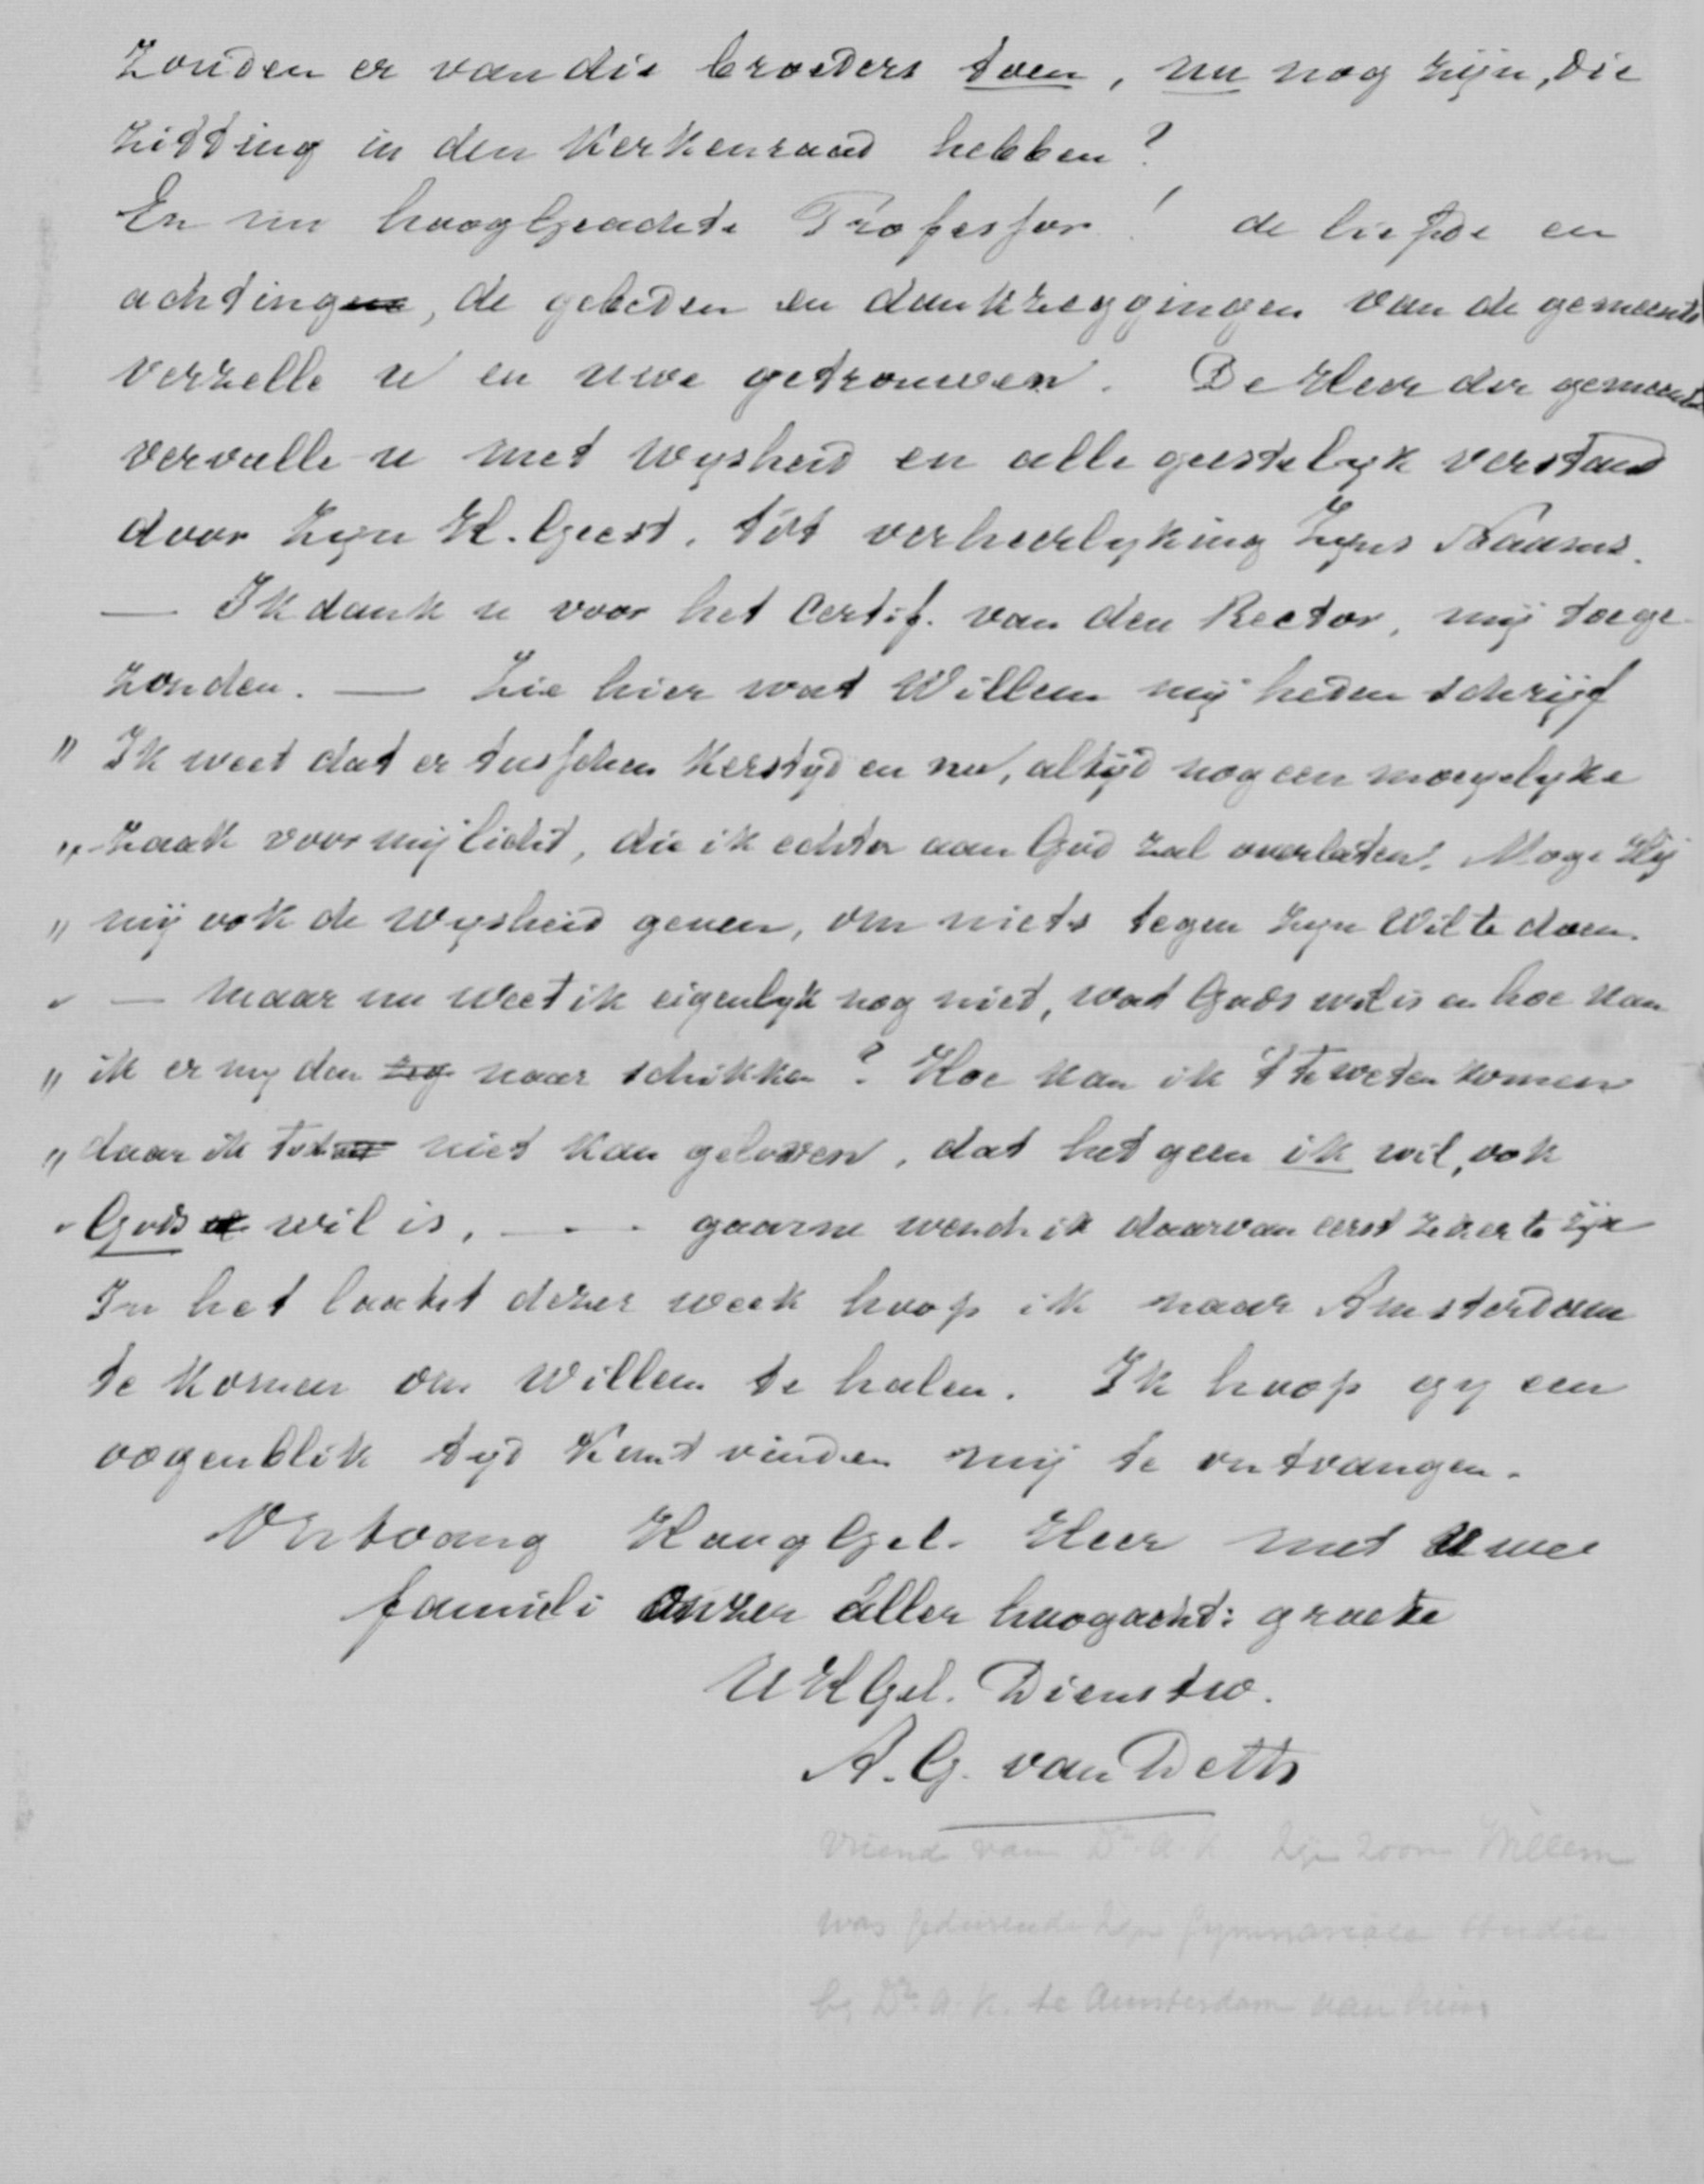 Zouden er van die broeders toen, nu nog zijn, die
zitting in den Kerkenraad hebben?
En nu hooggeachte Professor! de liefde en
achting, de gebeden en dankzeggingen van de gemeente
verzelle u en uwe getrouwen. De Heer der gemeente
vervulle u met wysheid en alle geestelyk verstand
door Zyn H. Geest. tot verheerlyking Zyns Naams.
— Ik dank u voor het Certif. van den Rector, mij toege-
zonden. — Zie hier wat Willem mij heden schrijf
" Ik weet dat er tusschen Kerstyd en nu, altyd nog een moeyelyke
" zaak voor mij licht, die ik echter aan God zal overlaten. Moge Hij
" mij ook de wysheid geven, om niets tegen Zyn Wil te doen.
" — maar nu weet ik eigenlyk nog niet, wat Gods wil is en hoe kan
" ik er my den zeg naar schikken? Hoe kan ik 't te weten komen
" daar ik tot niet kan gelooven, dat het geen ik wil, ook
" Gods wil is. — - - gaarne wensch ik daarvan eerst zeker te zyn
In het laatst dezer week hoop ik naar Amsterdam
te komen om Willem te halen. Ik hoop gy een
oogenblik tyd kunt vinden mij te ontvangen.
Ontvang HoogGel. Heer met Uwe
famieli onzer aller hoogacht: groete
UHGel. Dienstw.
A. G. van Deth
Vriend van Dr. A. K. Zyn zoon Willem
was gedurende zyn gymnasiale studie
by Dr. A. K. te Amsterdam aan huis